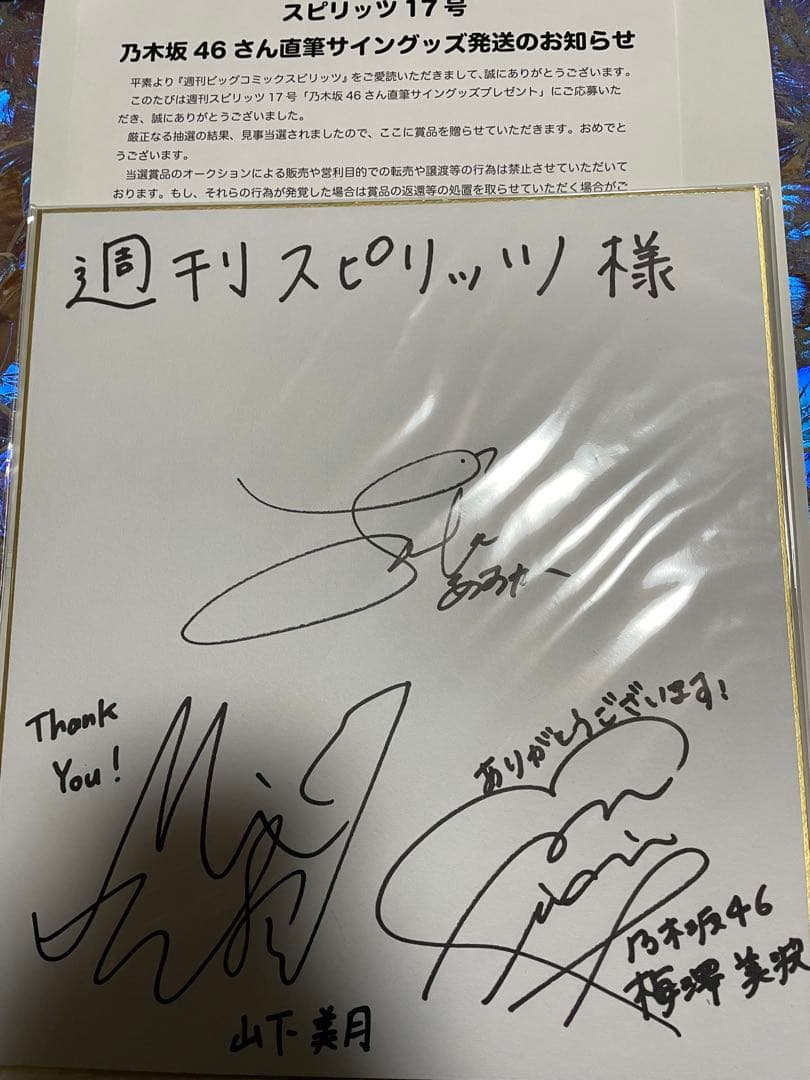 スピリッツ17号
乃木坂46さん直筆サイングッズ発送のお知らせ
平素より『週刊ビッグコミックスピリッツ』をご愛読いただきまして、誠にありがとうございます。
このたびは週刊スピリッツ17号「乃木坂46さん直筆サイングッズプレゼント」にご応募いた
だき、誠にありがとうございました。
厳正なる抽選の結果、見事当選されましたので、ここに賞品を贈らせていただきます。おめでと
うございます。
当選賞品のオークションによる販売や営利目的での転売や譲渡等の行為は禁止させていただいて
おります。もし、それらの行為が発覚した場合は賞品の返還等の処置を取らせていただく場合がご
週刊スピリッツ様
Thank
You!
ありがとうございます!
乃木坂46
梅澤美波
山下美月